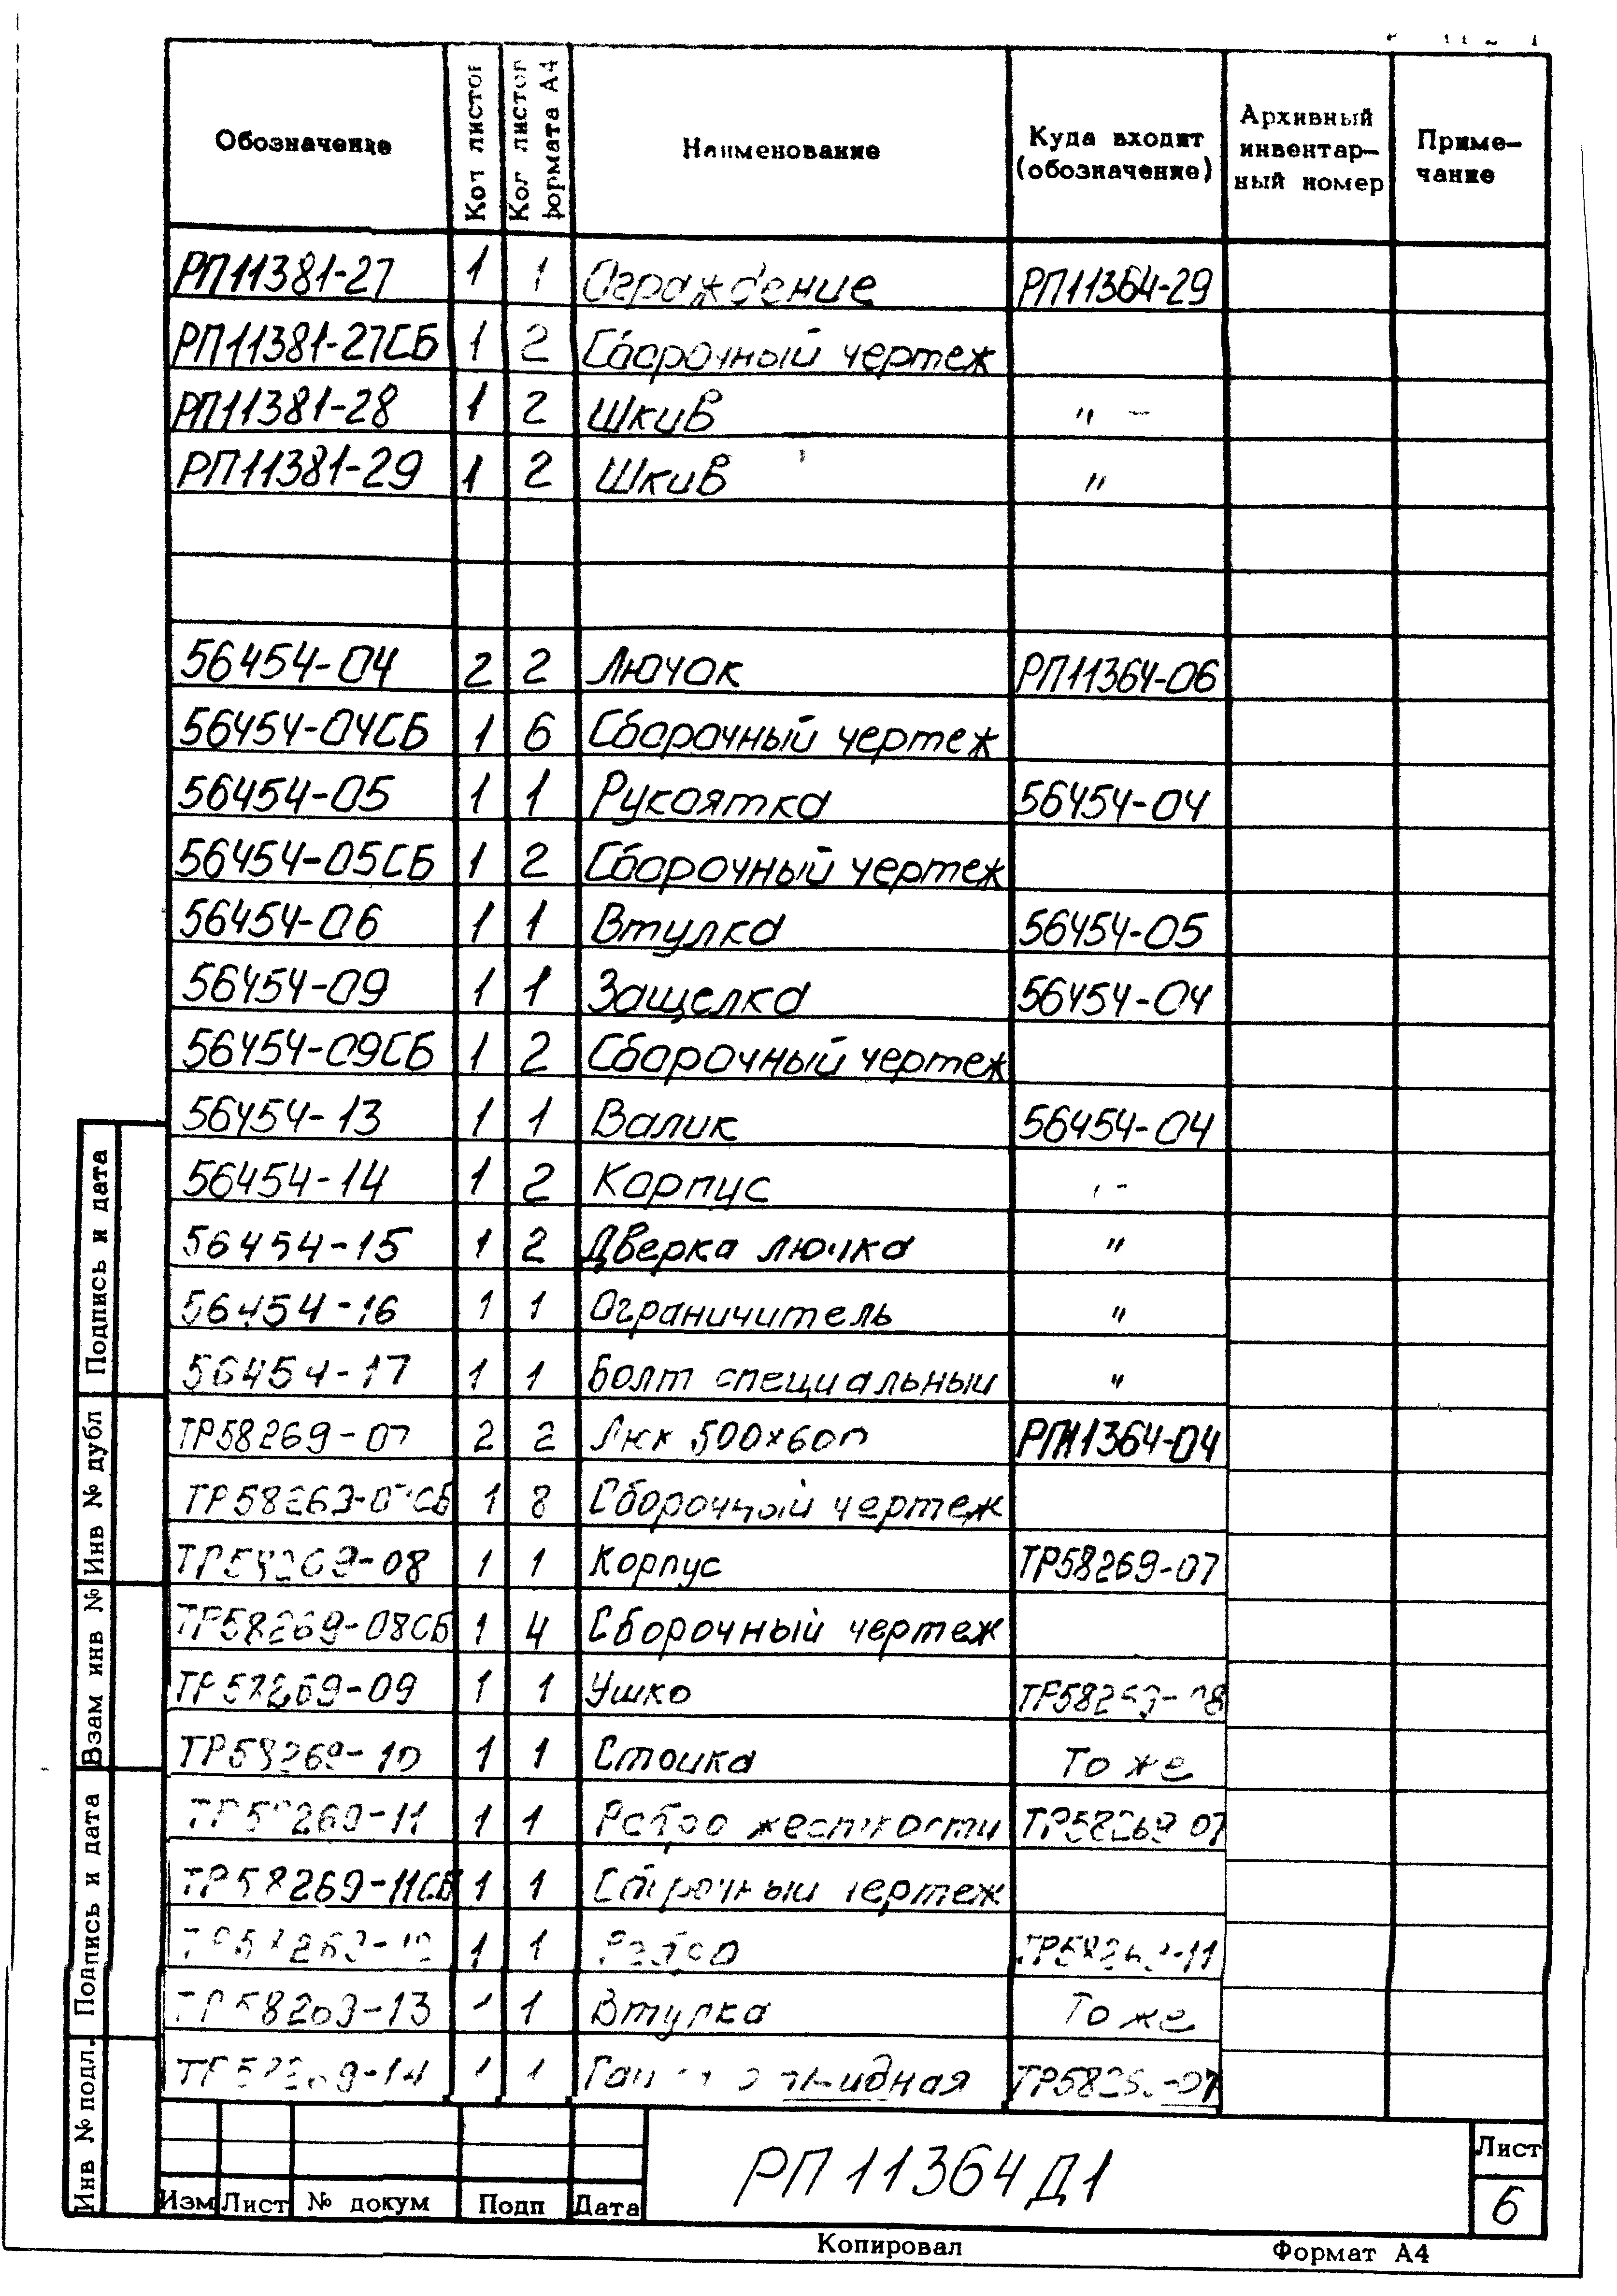 Обозначение | Кол листов | Кол листов формата А4 | Наименование | Куда входит (обозначение) | Архивный инвентарный номер | Примечание
РП11381-27 1 1 Ограждение РП11364-29
РП11381-27СБ 1 2 Сборочный чертеж
РП11381-28 1 2 Шкив " -
РП11381-29 1 2 Шкив "
56454-04 2 2 Лючок РП11364-06
56454-04СБ 1 6 Сборочный чертеж
56454-05 1 1 Рукоятка 56454-04
56454-05СБ 1 2 Сборочный чертеж
56454-06 1 1 Втулка 56454-05
56454-09 1 1 Защелка 56454-04
56454-09СБ 1 2 Сборочный чертеж
56454-13 1 1 Валик 56454-04
56454-14 1 2 Корпус
56454-15 1 2 Дверка лючка "
56454-16 1 1 Ограничитель "
56454-17 1 1 Болт специальный "
ТР58269-07 2 2 Люк 500×600 РП11364-04
ТР58269-07СБ 1 8 Сборочный чертеж
ТР58269-08 1 1 Корпус ТР58269-07
ТР58269-08СБ 1 4 Сборочный чертеж
ТР58269-09 1 1 Ушко ТР58269-08
ТР58269-10 1 1 Стойка То же
ТР58269-11 1 1 Ребро жесткости ТР58269-07
ТР58269-11СБ 1 1 Сборочный чертеж
ТР58269-12 1 1 Ребро ТР58269-11
ТР58269-13 1 1 Втулка То же
ТР58269-14 1 1 ТР58269-07
РП11364Д1
Лист
6
Изм Лист № докум Подп Дата
Копировал Формат А4
Подпись и дата
Инв № дубл
Взам инв №
Подпись и дата
Инв № подл.